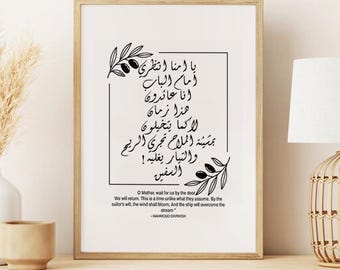 يا أمنا انتظري
أمام الباب
انا عائدون
هذا زمان
لا كما يتخيلون
بمشيئة الملاح تجري الريح
والتيار يغلبه!
السفين
O Mother, wait for us by the door.
We will return. This is a time unlike what they assume. By the
sailor's will, the wind shall bloom, And the ship will overcome the
stream "
- MAHMOUD DARWISH